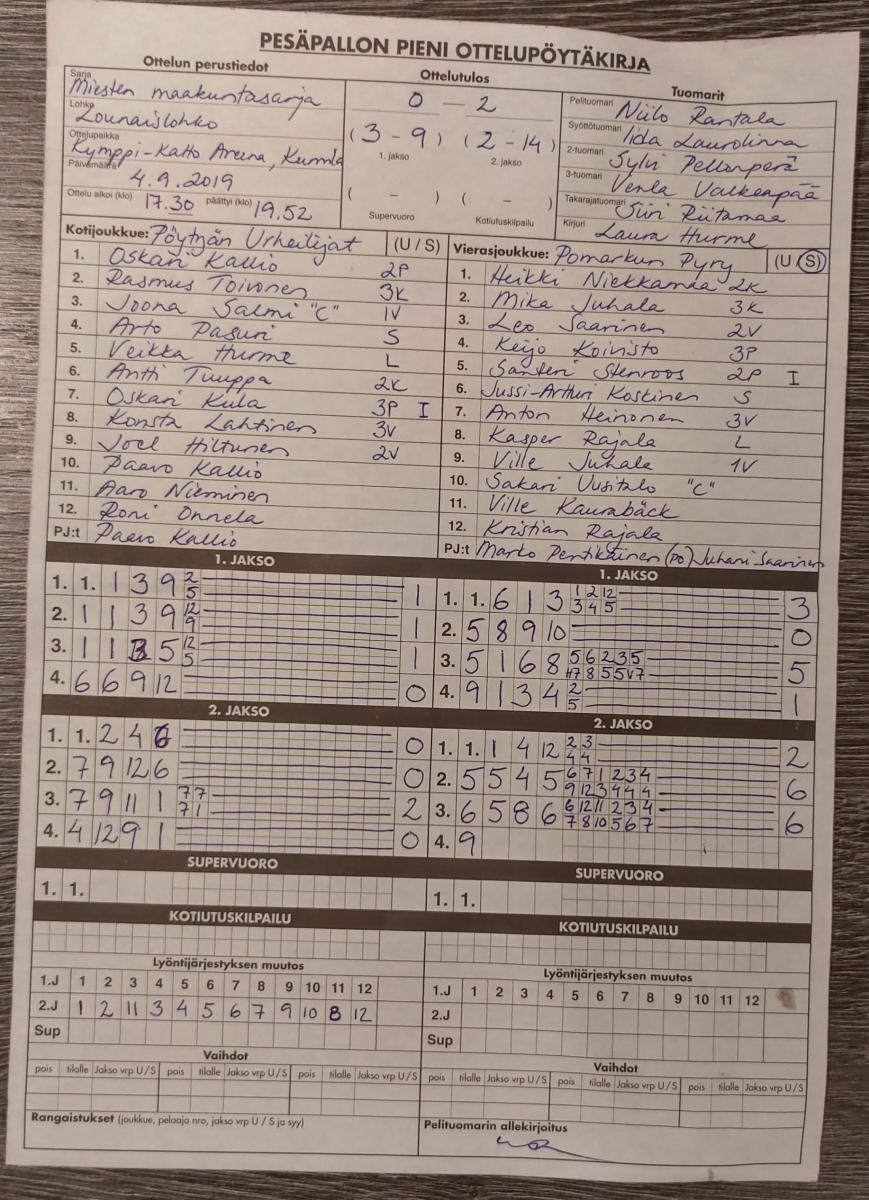 PESÄPALLON PIENI OTTELUPÖYTÄKIRJA
Ottelun perustiedot
Sarja
Miesten maakuntasarja
Lohko
Lounaislohko
Ottelupaikka
Kymppi-Katto Areena, Kumila
Päivämäärä
4.9.2019
Ottelu alkoi (klo) 17.30 päättyi (klo) 19.52
Ottelutulos
0 - 2
(3 - 9) (2 - 14)
1. jakso 2. jakso
( - ) ( - )
Supervuoro Kotiutuskilpailu
Tuomarit
Pelituomari Niilo Rantala
Syöttötuomari Iida Laurolinna
2-tuomari Sylvi Pellonperä
3-tuomari Venla Valkeapää
Takarajatuomari Siiri Riitamaa
Kirjuri Laura Hurme
Kotijoukkue: Pöytyän Urheilijat (U / S)
1. Oskari Kallio 2P
2. Rasmus Toivonen 3K
3. Joona Salmi "C" 1V
4. Arto Pasuri S
5. Veikka Hurme L
6. Antti Tuuppa 2K
7. Oskari Kula 3P I
8. Konsta Lahtinen 3V
9. Joel Hiltunen 2V
10. Paavo Kallio
11. Aaro Nieminen
12. Roni Onnela
PJ:t Paavo Kallio
Vierasjoukkue: Pomarkun Pyry (U / S)
1. Heikki Niekkamaa 2K
2. Mika Juhala 3K
3. Leo Saarinen 2V
4. Keijo Koivisto 3P
5. Santeri Stenroos 2P I
6. Jussi-Artturi Koskinen S
7. Anton Heinonen 3V
8. Kasper Rajala L
9. Ville Juhala 1V
10. Sakari Uusitalo "C"
11. Ville Kaurabäck
12. Kristian Rajala
PJ:t Marko Pentikäinen (PO) Juhani Saarinen
1. JAKSO
1. 1. 1 3 9 2 1
5
2. 1 1 3 9 12 1
9
3. 1 1 3 5 12 1
5
4. 6 6 9 12 0
2. JAKSO
1. 1. 2 4 6 0
2. 7 9 12 6 0
3. 7 9 11 1 7 7 2
7 1
4. 4 12 9 1 0
SUPERVUORO
1. 1.
KOTIUTUSKILPAILU
1. JAKSO
1. 1. 6 1 3 1 2 12 3
3 4 5
2. 5 8 9 10 0
3. 5 1 6 8 5 6 2 3 5 5
4. 9 1 3 4 2 1
5
2. JAKSO
1. 1. 1 4 12 2 3 2
4 4
2. 5 5 4 5 6 7 1 2 3 4 6
9 12 3 4 4 4
3. 6 5 8 6 6 12 11 2 3 4 6
7 8 10 5 6 7
4. 9
SUPERVUORO
1. 1.
KOTIUTUSKILPAILU
Lyöntijärjestyksen muutos
1.J 1 2 3 4 5 6 7 8 9 10 11 12
2.J 1 2 11 3 4 5 6 7 9 10 8 12
Sup
Vaihdot
pois tilalle Jakso vrp U / S pois tilalle Jakso vrp U / S pois tilalle Jakso vrp U / S
Rangaistukset (joukkue, pelaaja nro, jakso vrp U / S ja syy)
Lyöntijärjestyksen muutos
1.J 1 2 3 4 5 6 7 8 9 10 11 12
2.J
Sup
Vaihdot
pois tilalle Jakso vrp U / S pois tilalle Jakso vrp U / S pois tilalle Jakso vrp U / S
Pelituomarin allekirjoitus